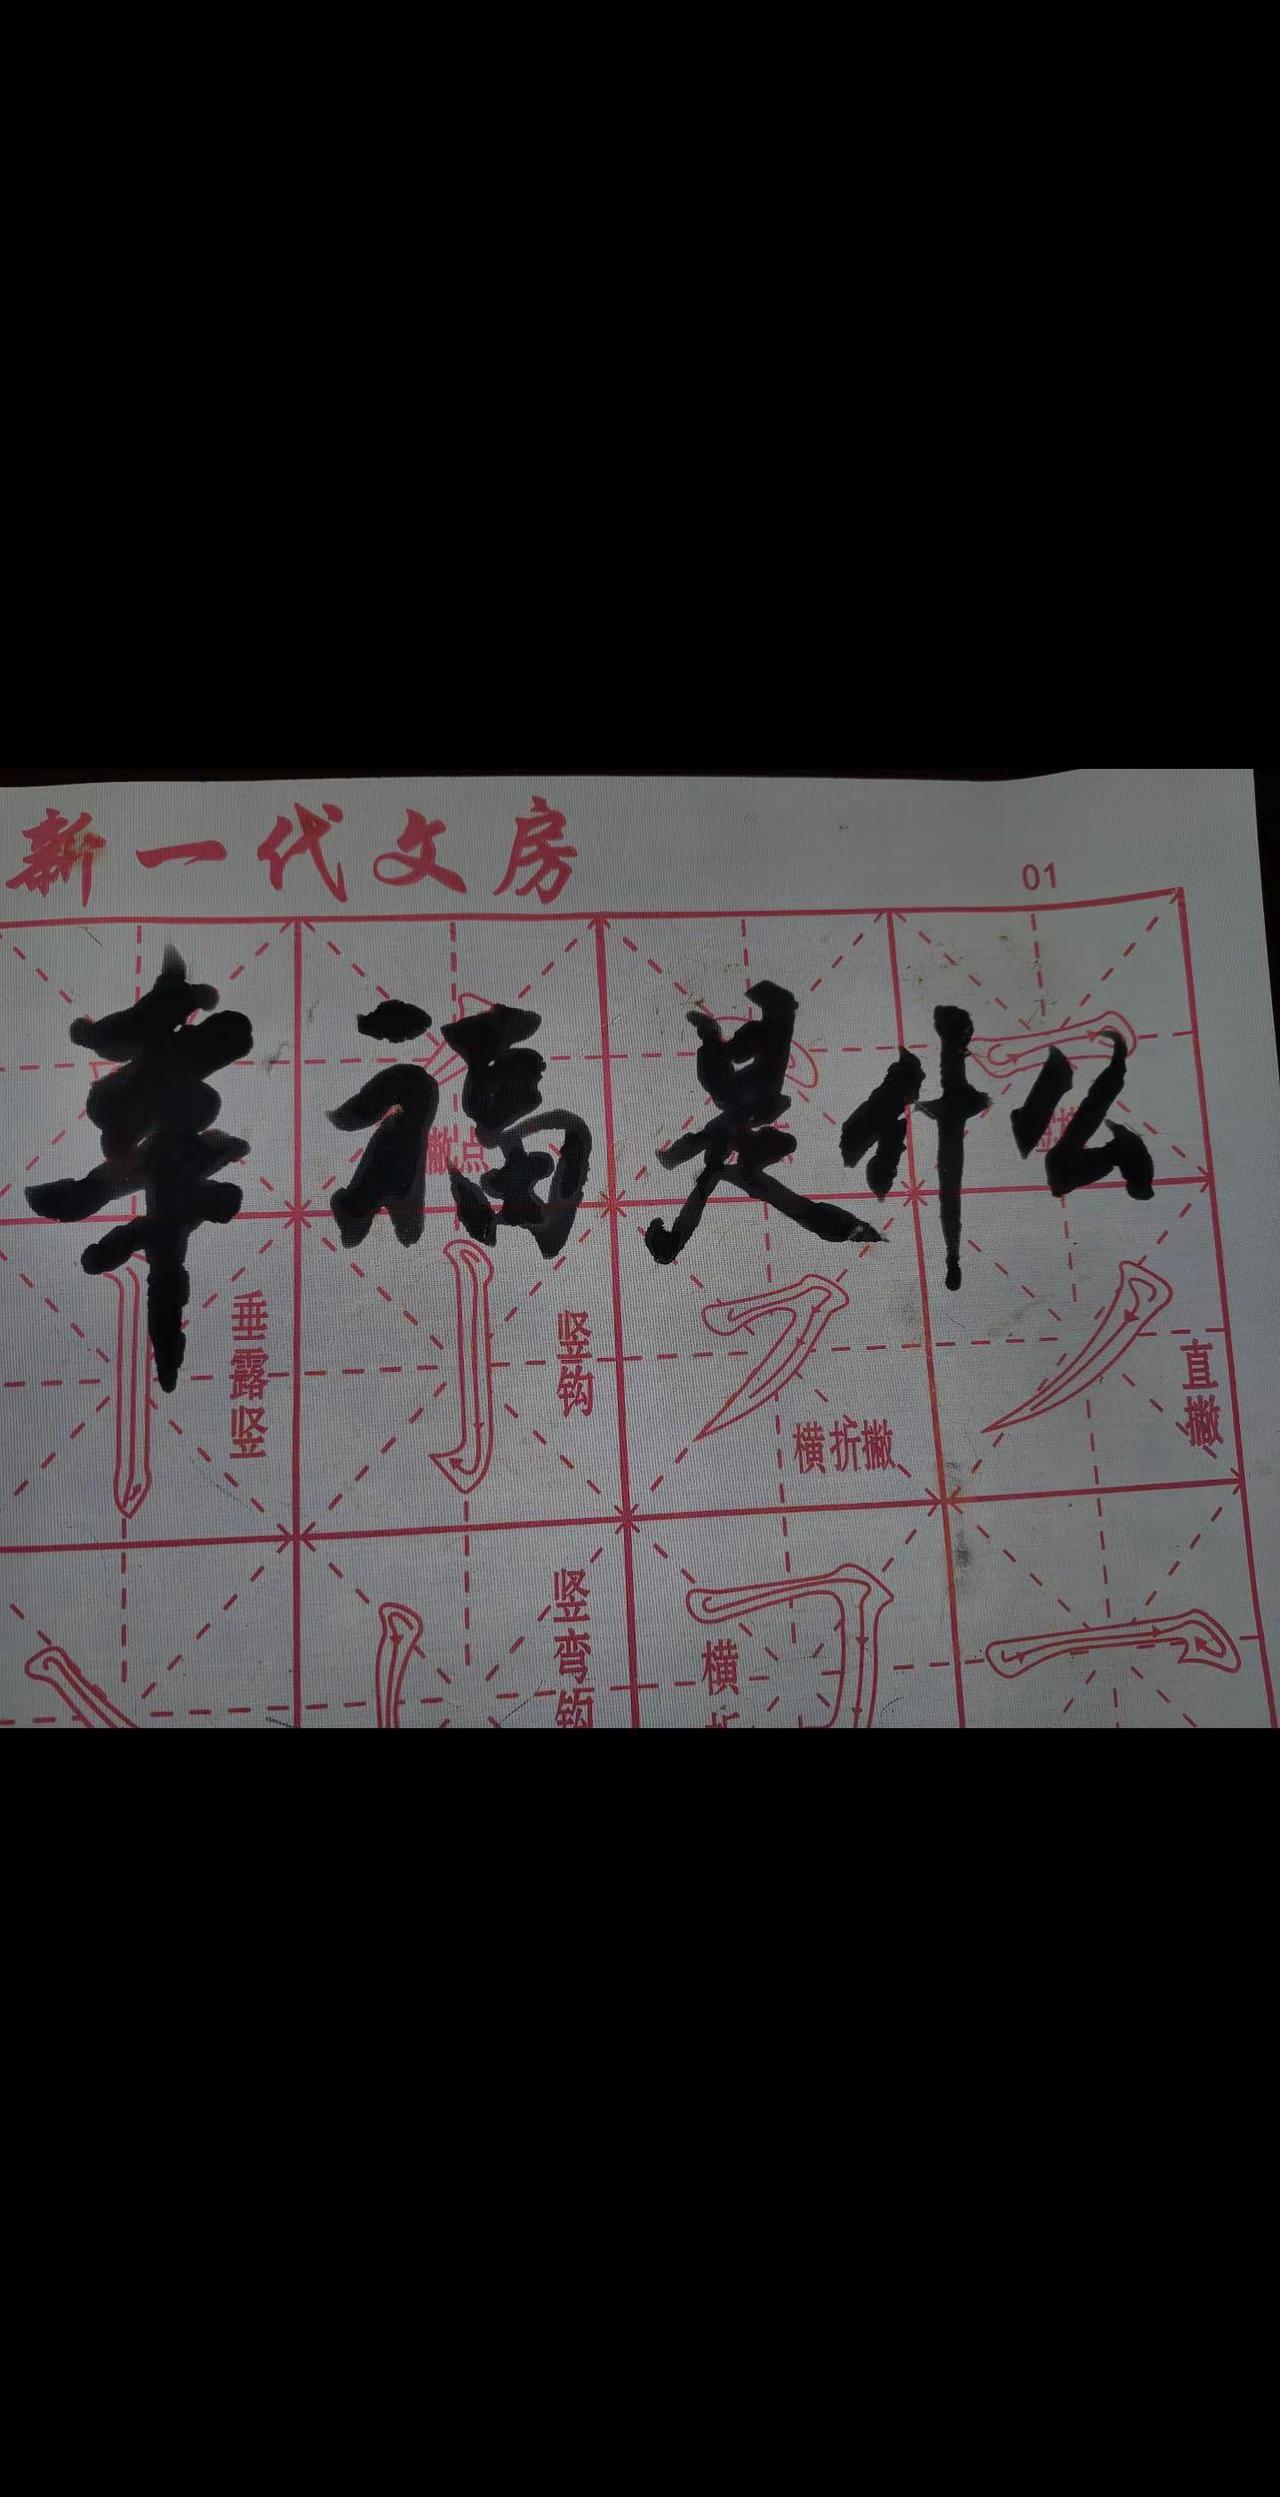 新一代文房
01
幸福是什么
撇点
垂露竖
竖钩
横折撇
直撇
竖弯钩
横折